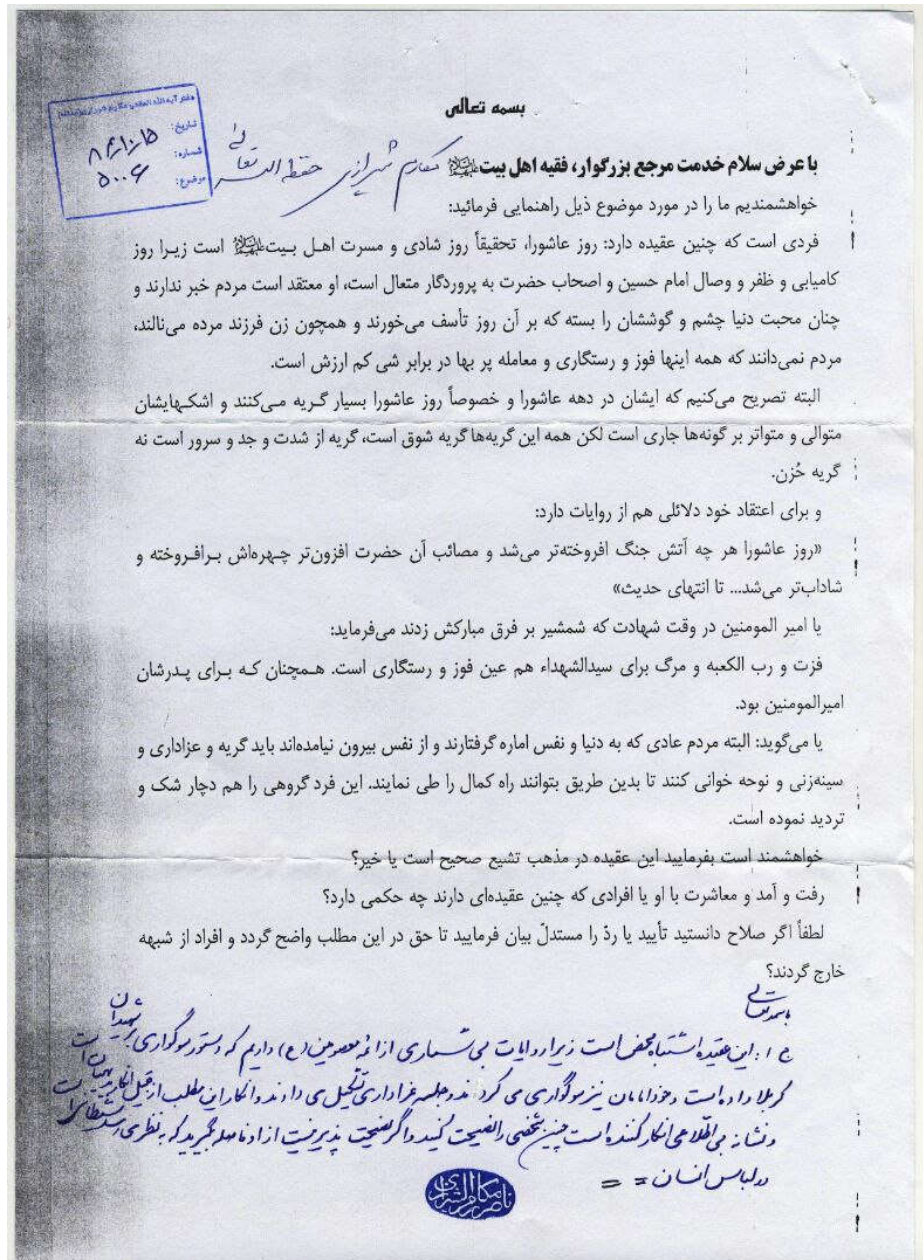 بسمه تعالی
دفتر آیة الله العظمی مکارم شیرازی
تاریخ: ۸۴/۱۰/۱۵
شماره: ۵۰۰۶
موضوع:
با عرض سلام خدمت مرجع بزرگوار، فقیه اهل بیت علیهم‌السلام مکارم شیرازی حفظه الله تعالی
خواهشمندیم ما را در مورد موضوع ذیل راهنمایی فرمائید:
فردی است که چنین عقیده دارد: روز عاشورا، تحقیقاً روز شادی و مسرت اهل بیت علیهم‌السلام است زیرا روز
کامیابی و ظفر و وصال امام حسین و اصحاب حضرت به پروردگار متعال است، او معتقد است مردم خبر ندارند و
چنان محبت دنیا چشم و گوششان را بسته که بر آن روز تأسف می‌خورند و همچون زن فرزند مرده می‌نالند،
مردم نمی‌دانند که همه اینها فوز و رستگاری و معامله پر بها در برابر شی کم ارزش است.
البته تصریح می‌کنیم که ایشان در دهه عاشورا و خصوصاً روز عاشورا بسیار گریه می‌کنند و اشکهایشان
متوالی و متواتر بر گونه‌ها جاری است لکن همه این گریه‌ها گریه شوق است، گریه از شدت و جد و سرور است نه
گریه حُزن.
و برای اعتقاد خود دلائلی هم از روایات دارد:
«روز عاشورا هر چه آتش جنگ افروخته‌تر می‌شد و مصائب آن حضرت افزون‌تر چهره‌اش برافروخته و
شاداب‌تر می‌شد... تا انتهای حدیث»
یا امیر المومنین در وقت شهادت که شمشیر بر فرق مبارکش زدند می‌فرماید:
فزت و رب الکعبه و مرگ برای سیدالشهداء هم عین فوز و رستگاری است. همچنان که برای پدرشان
امیرالمومنین بود.
یا می‌گوید: البته مردم عادی که به دنیا و نفس اماره گرفتارند و از نفس بیرون نیامده‌اند باید گریه و عزاداری و
سینه‌زنی و نوحه خوانی کنند تا بدین طریق بتوانند راه کمال را طی نمایند. این فرد گروهی را هم دچار شک و
تردید نموده است.
خواهشمند است بفرمایید این عقیده در مذهب تشیع صحیح است یا خیر؟
رفت و آمد و معاشرت با او یا افرادی که چنین عقیده‌ای دارند چه حکمی دارد؟
لطفاً اگر صلاح دانستید تأیید یا ردّ را مستدلّ بیان فرمایید تا حق در این مطلب واضح گردد و افراد از شبهه
خارج گردند؟
باسمه تعالی
ج ۱: این عقیده اشتباه محض است زیرا روایات بی شماری از ائمه معصومین (ع) داریم که دستور سوگواری بر شهیدان
کربلا داده است و خود امامان نیز سوگواری می کردند و جلسه عزاداری تشکیل می دادند و انکار این مطلب از قبیل انکار بدیهیات است
و نشانه بی اطلاعی انکار کننده است چنین شخصی را نصیحت کنید و اگر نصیحت پذیر نیست از او فاصله بگیرید که به نظر می رسد شیطانی است
در لباس انسان
ناصر مکارم الشیرازی